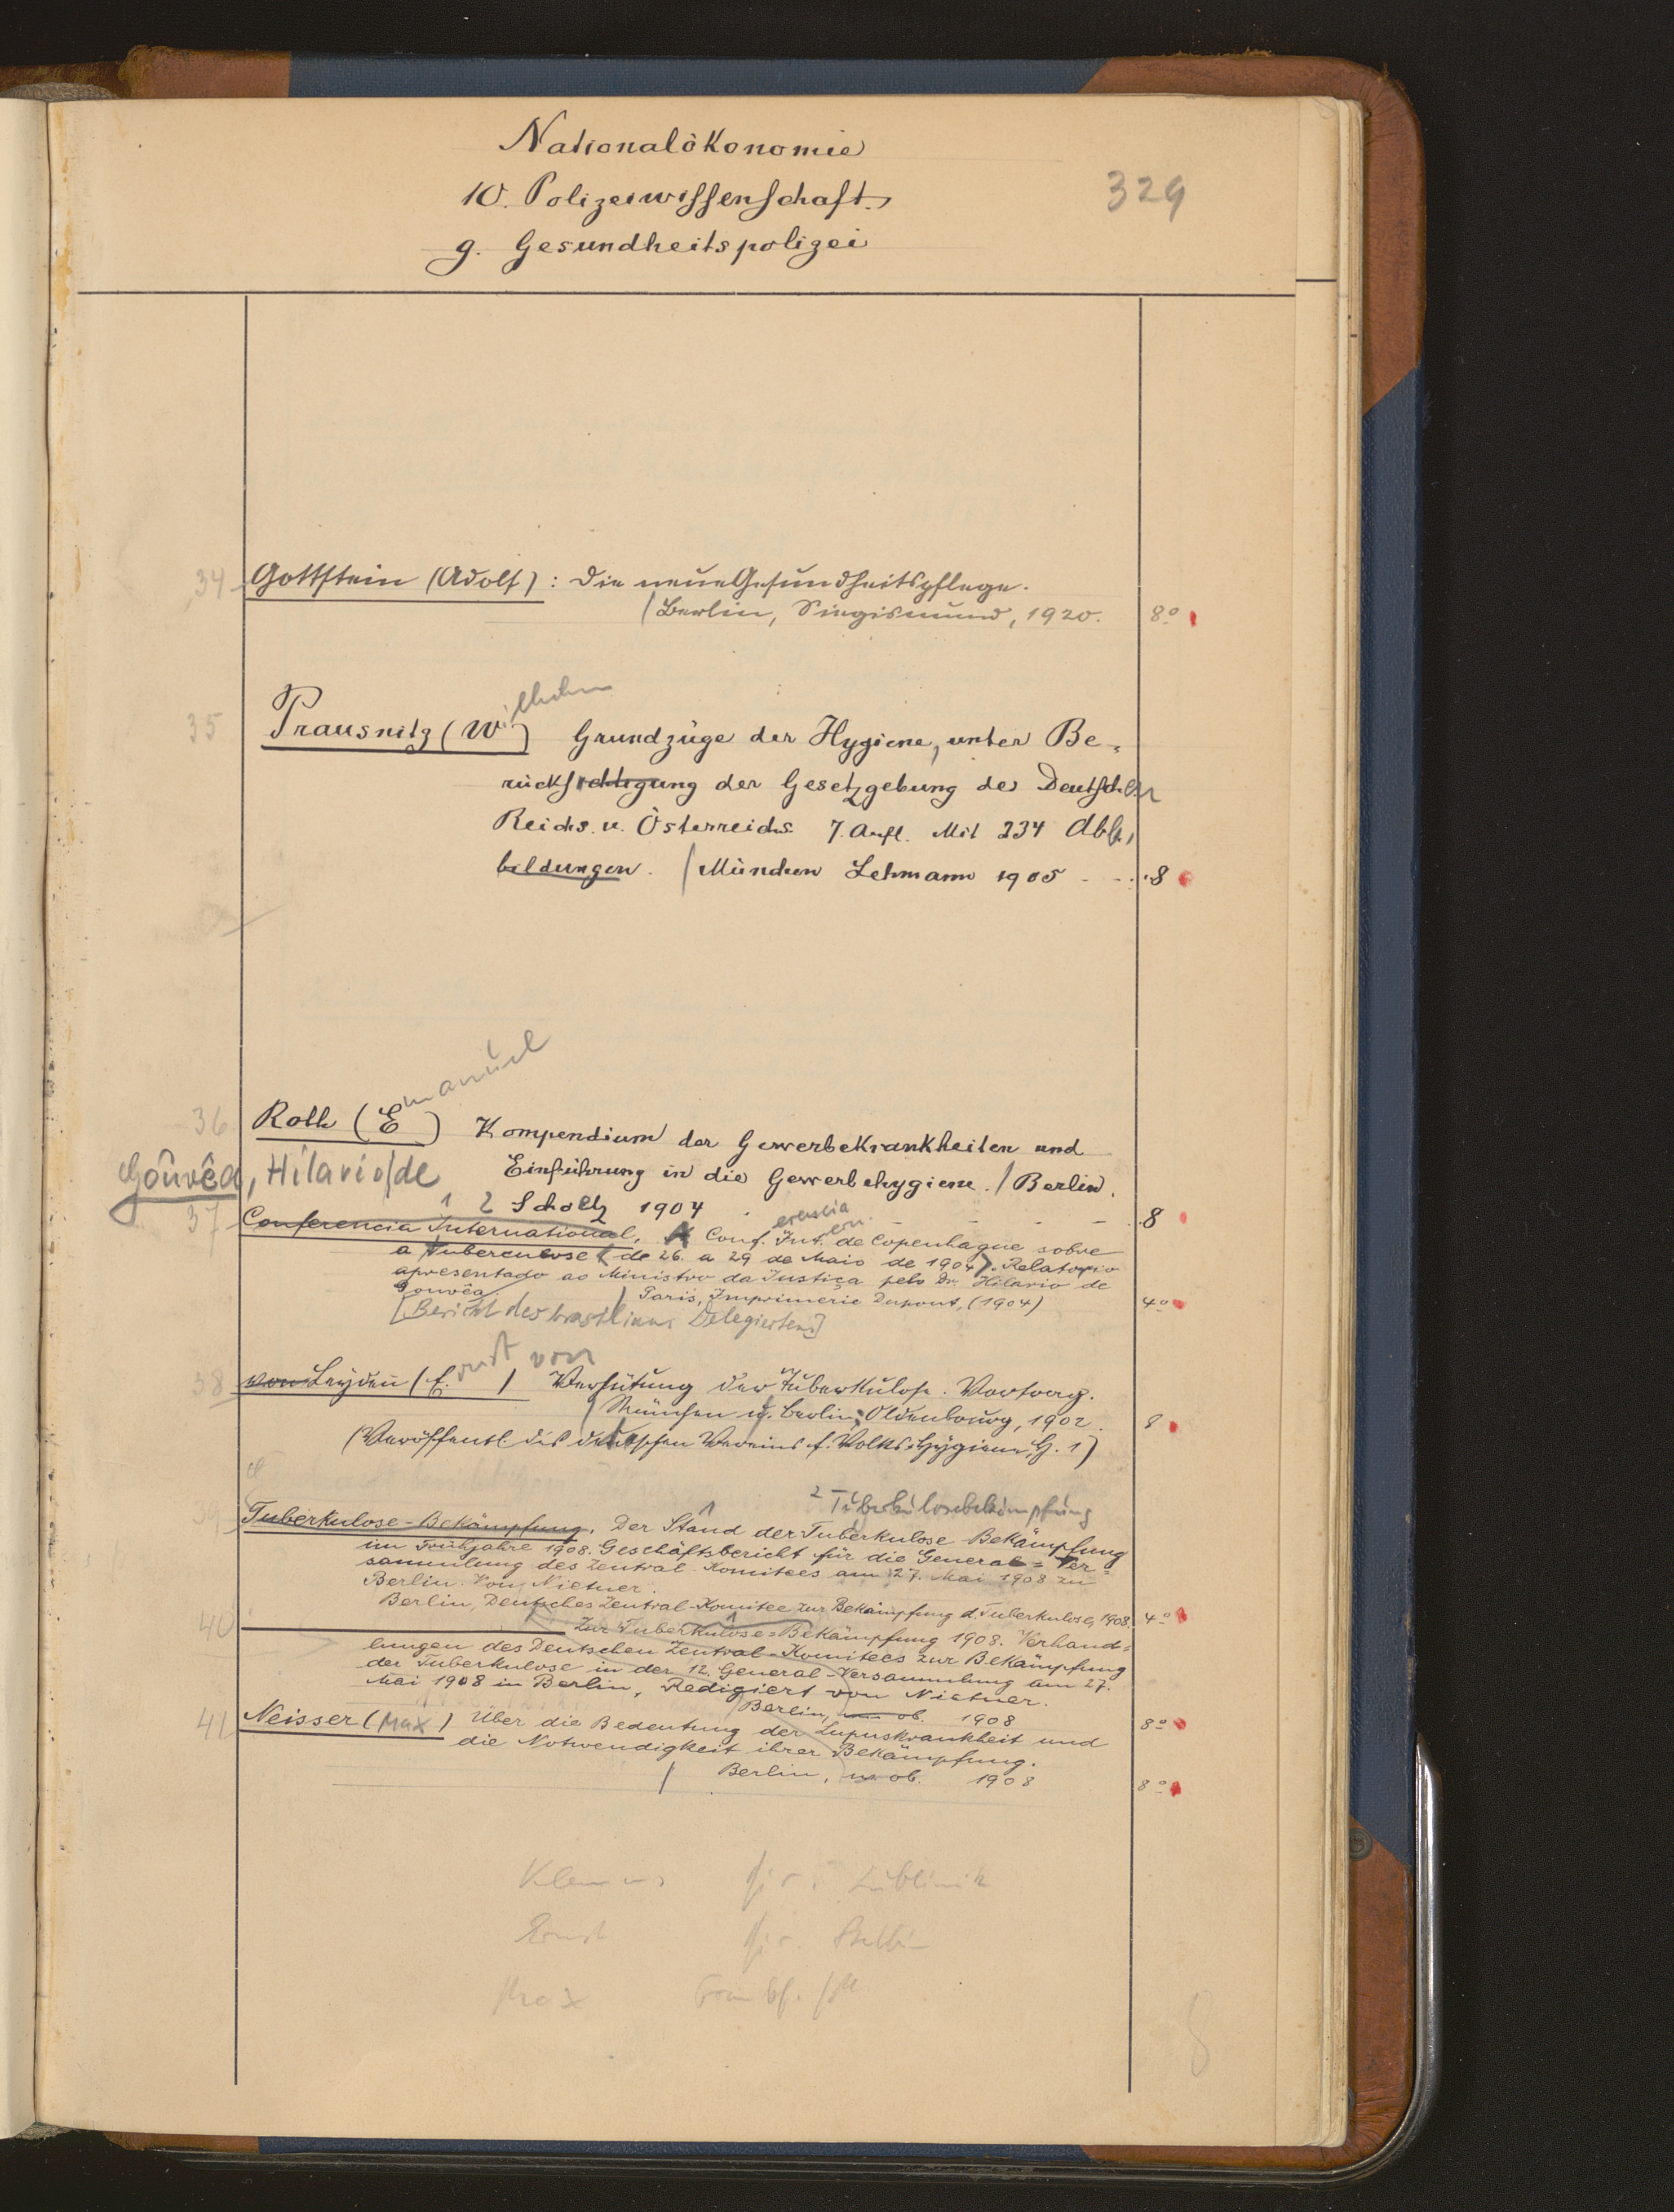 Nationalökonomie
10. Polizeiwissenschaft.
329
g. Gesundheitspolizei
34 Gottstein (Adolf): Die neue Gesundheitspflege.
/Berlin, Siegismund, 1920. 8°
35 Prausnitz (Wilhelm) Grundzüge der Hygiene, unter Be-
rücksichtigung der Gesetzgebung des Deutschen
Reichs u. Österreichs 7. Aufl. Mit 234 Abb.
bildungen. / München Lehmann 1905 - - 8
36 Roth (Emanuel) Kompendium der Gewerbekrankheiten und
Einführung in die Gewerbehygiene. / Berlin.
Gouvêa, Hilario/de
1 2 Scholtz 1904 - - - 8
37 Conferencia International, A Conferencia Intern. de Copenhague sobre
a Tuberculose (de 26. a 29 de Maio de 1904). Relatorio
apresentado ao Ministro da Justiça pelo Dr. Hilario de
Gouvêa. / Paris, Imprimerie Dupont, (1904) 4°
[Bericht des brasilian. Delegierten]
38 von Leyden (Ernst von) Verhütung der Tuberkulose. Vortrag.
/ München u. Berlin, Oldenbourg, 1902. 8
(Veröffentl. des deutschen Vereins f. Volks-Hygiene, H. 1)
2 Tuberkulosebekämpfung
39 Tuberkulose-Bekämpfung. Der Stand der Tuberkulose Bekämpfung
im Frühjahre 1908. Geschäftsbericht für die General-Ver-
sammlung des Zentral-Komitees am 27. Mai 1908 zu
Berlin. Von Nietner.
Berlin, Deutsches Zentral-Komitee zur Bekämpfung d. Tuberkulose, 1908. 4°
40 Zur Tuberkulose-Bekämpfung 1908. Verhand-
lungen des Deutschen Zentral-Komitees zur Bekämpfung
der Tuberkulose in der 12. General-Versammlung am 27.
Mai 1908 in Berlin, Redigiert von Nietner.
Berlin, w. ob. 1908 8°
41 Neisser (Max) Über die Bedeutung der Lupuskrankheit und
die Notwendigkeit ihrer Bekämpfung.
/ Berlin, w. ob. 1908 8°
Klemens Lublinik
Ernst Stettin
Max Frankf.
8